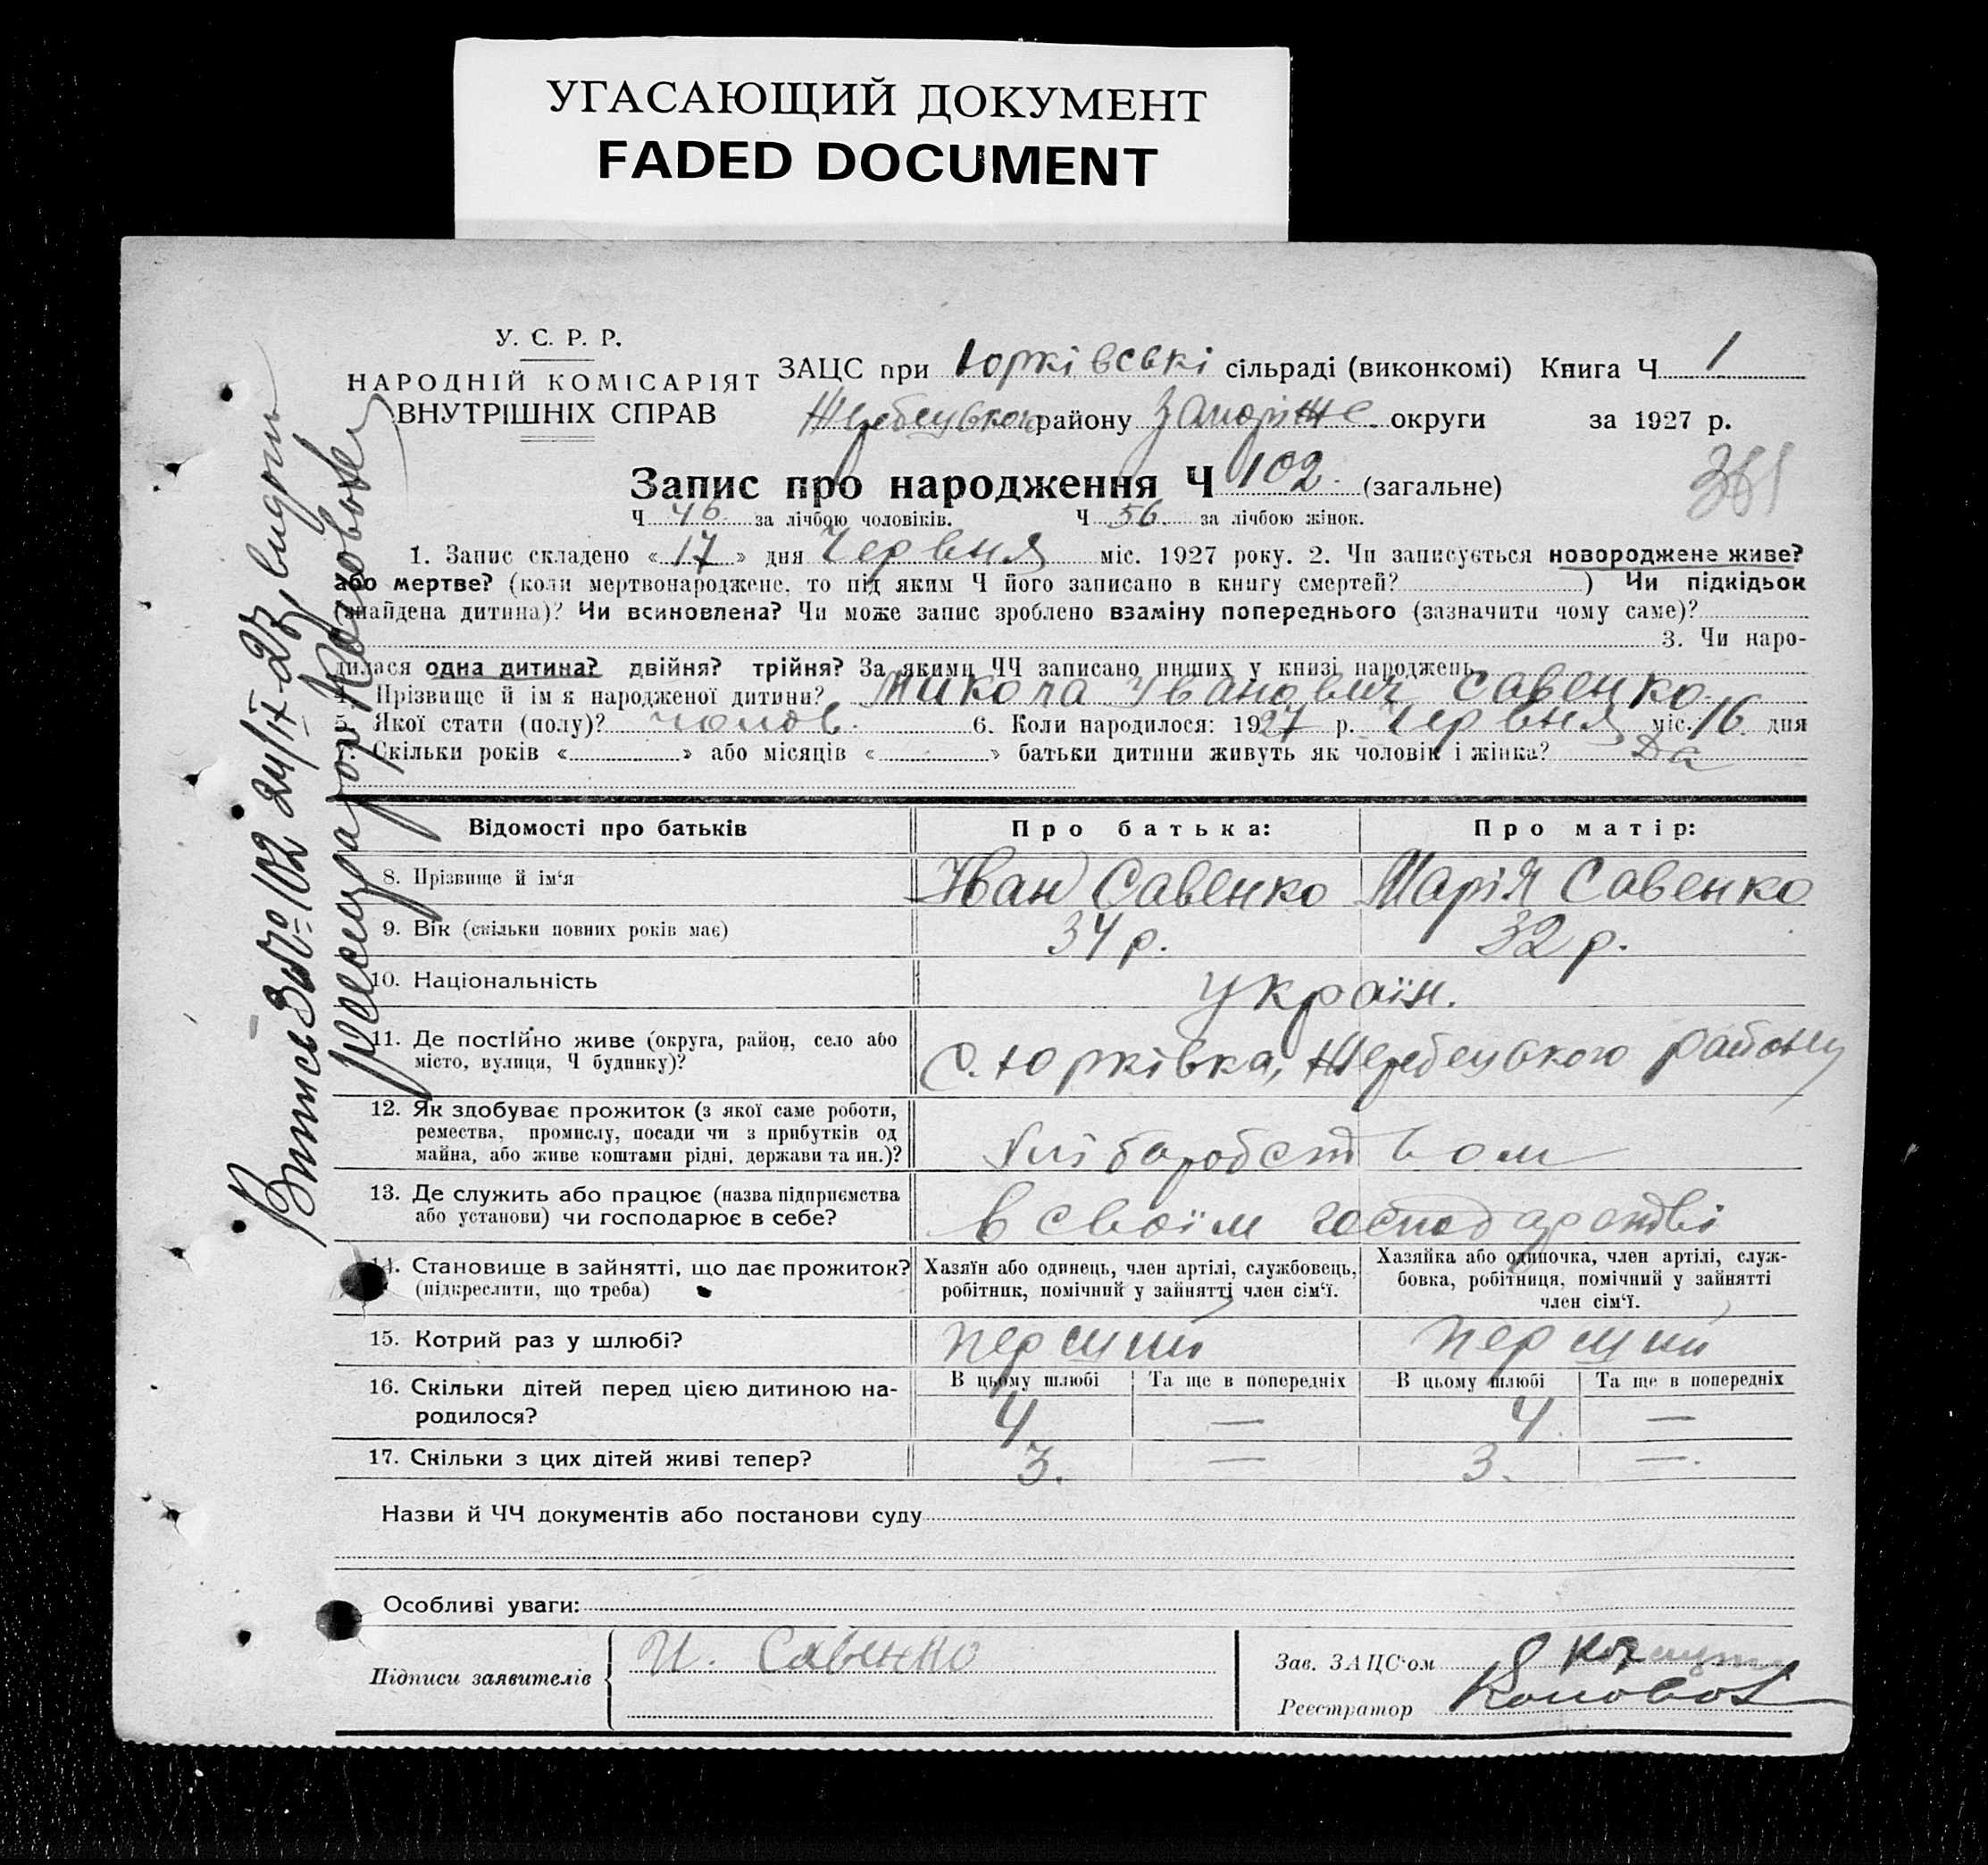 УГАСАЮЩИЙ ДОКУМЕНТ
FADED DOCUMENT
У. С. Р. Р.
НАРОДНІЙ КОМІСАРІЯТ
ВНУТРІШНІХ СПРАВ
ЗАЦС при Юрківські сільраді (виконкомі) Книга Ч 1
Жеребецького району Запоріже округи за 1927 р.
381
Запис про народження Ч 102. (загальне)
Ч 46 за лічбою чоловіків. Ч 56 за лічбою жінок.
1. Запис складено « 17 » дня Червня міс. 1927 року. 2. Чи записується новороджене живе?
або мертве? (коли мертвонароджене, то під яким Ч його записано в книгу смертей? ) Чи підкідьок
(знайдена дитина)? Чи всиновлена? Чи може запис зроблено взаміну попереднього (зазначити чому саме)?
3. Чи наро-
дилася одна дитина? двійня? трійня? За якими ЧЧ записано инших у книзі народжень
4. Прізвище й ім'я народженої дитини? Микола Іванович Савенко.
5. Якої стати (полу)? чолов. 6. Коли народилося: 1927 р. Червня міс. 16 дня
7. Скільки років « » або місяців « » батьки дитини живуть як чоловік і жінка? Да
Відомості про батьків Про батька: Про матір:
8. Прізвище й ім'я Іван Савенко Марія Савенко
9. Вік (скільки повних років має) 34 р. 32 р.
10. Національність україн.
11. Де постійно живе (округа, район, село або
місто, вулиця, Ч будинку)?
с. Юрківка, Жеребецького району
12. Як здобуває прожиток (з якої саме роботи,
ремества, промислу, посади чи з прибутків од
майна, або живе коштами рідні, держави та ин.)?
Хліборобством
13. Де служить або працює (назва підприємства
або установи) чи господарює в себе?
в своїм господарстві
14. Становище в зайнятті, що дає прожиток?
(підкреслити, що треба)
Хазяїн або одинець, член артілі, службовець,
робітник, помічний у зайнятті член сім'ї.
Хазяйка або одиночка, член артілі, служ-
бовка, робітниця, помічний у зайнятті
член сім'ї.
15. Котрий раз у шлюбі? перший перший
16. Скільки дітей перед цією дитиною на-
родилося?
В цьому шлюбі Та ще в попередніх В цьому шлюбі Та ще в попередніх
4 — 4 —
17. Скільки з цих дітей живі тепер? 3. — 3. —.
Назви й ЧЧ документів або постанови суду
Особливі уваги:
Підписи заявителів И. Савенко
Зав. ЗАЦС'ом
Реєстратор
Випись За № 102 24/IX-27